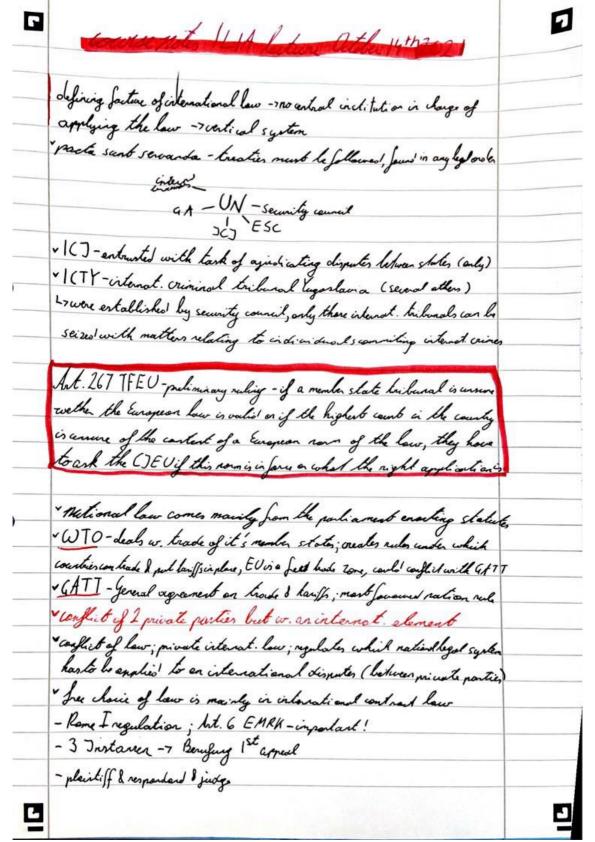 course notes lecture October 14th 2021
defining facture of international law -> no central institution in charge of
applying the law -> vertical system
pacta sunt servanda - treaties must be followed, found in any legal order
GA - UN - security council
ICJ ESC
ICJ - entrusted with task of ajudicating disputes between states (only)
ICTY - internat. criminal tribunal Yugoslavia (several others)
were established by security council, only these internat. tribunals can be
seized with matters relating to individuals commiting internat crimes
Art. 267 TFEU - preliminary ruling - if a member state tribunal is unsure
wether the European law is valid or if the highest court in the country
is unsure of the content of a European norm of the law, they have
to ask the CJEU if this norm is in force or what the right application is
National law comes mainly from the parliament enacting statutes
WTO - deals w. trade of it's member states; creates rules under which
countries can trade & put tariffs in place, EU is a free trade zone, could conflict with GATT
GATT - General agreement on trade & tariffs; most favoured nation rule
conflict of 2 private parties but w. an internat. element
conflict of law; private internat. law; regulates which national legal system
has to be applied to an international disputes (between private parties)
free choice of law is mainly in international contract law
- Rome I regulation; Art. 6 EMRK - important!
- 3 Instanzen -> Berufung 1st appeal
- plaintiff & respondend & judge